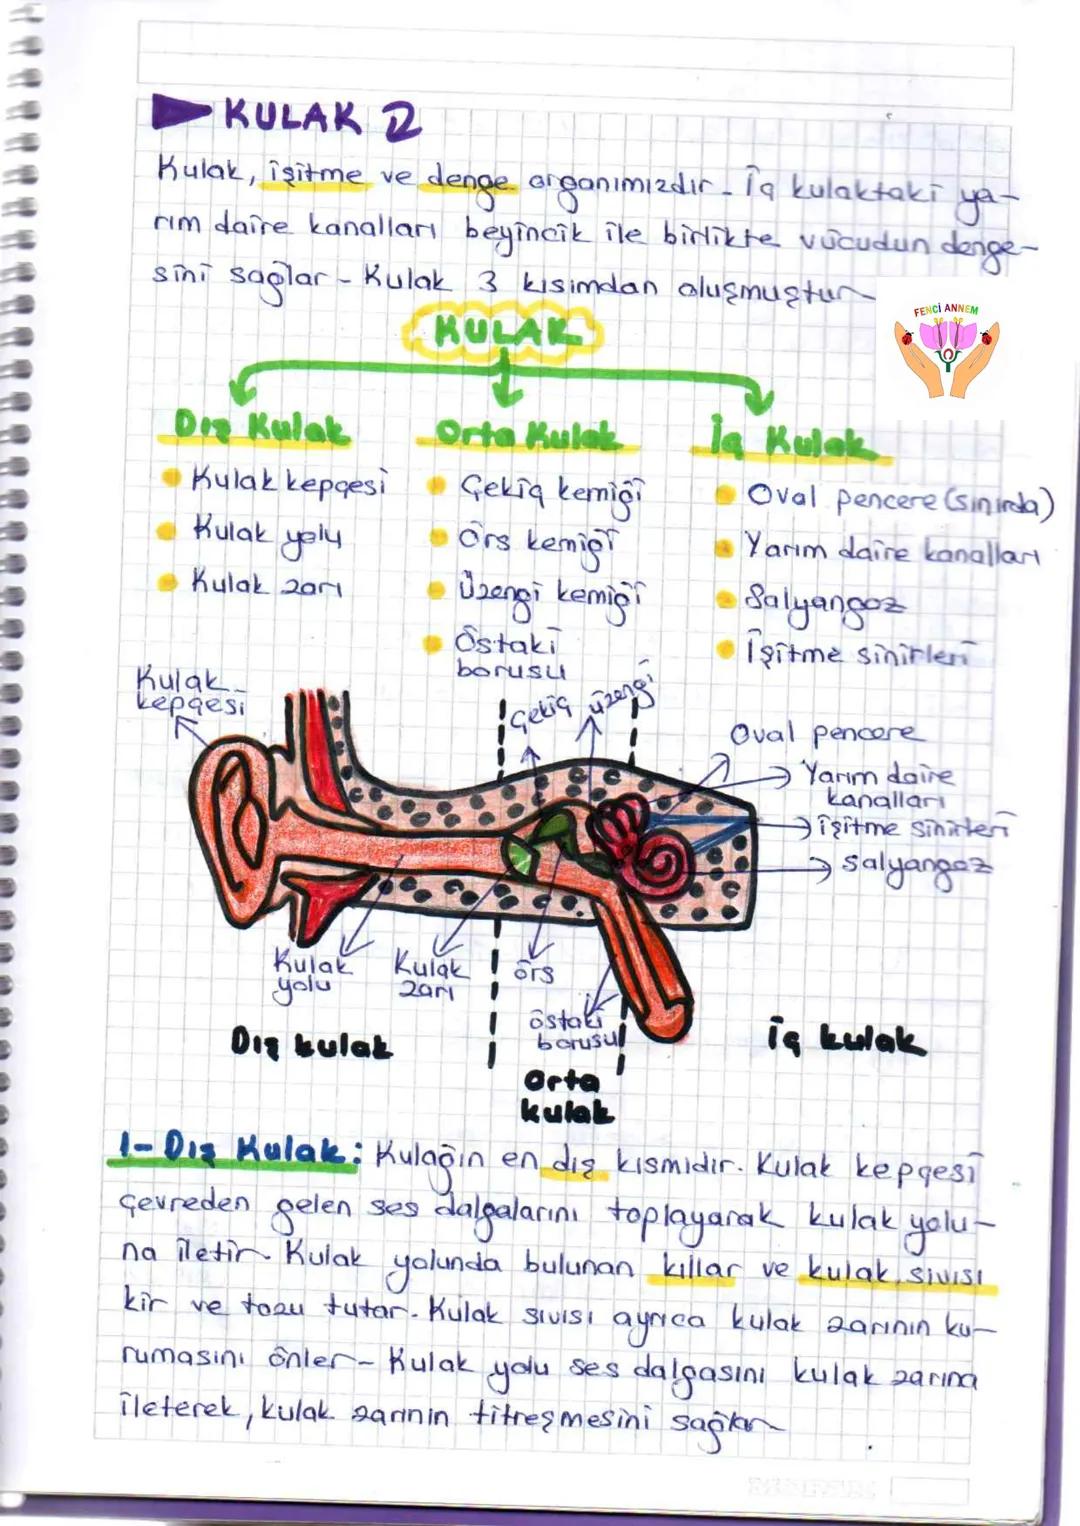 KULAK
Kulak, işitme ve denge organımızdır. İç kulaktaki ya-
rım daire kanalları beyincik ile birlikte vücudun denge-
sini sağlar. Kulak 3 kısımdan oluşmuştur.
FENCİ ANNEM
KULAK
Dış Kulak
Orta Kulak
İç Kulak
Kulak kepçesi
Çekiç kemiği
Oval pencere (sınırda)
Kulak yolu
Örs kemiği
Yarım daire kanalları
Kulak zarı
Üzengi kemiği
Salyangoz
Östaki
borusu
İşitme sinirleri
Kulak
kepçesi
Çekiç
üzengi
Oval pencere
Yarım daire
kanalları
işitme sinirleri
salyangoz
Kulak
yolu
Kulak
zarı
örs
östaki
borusu
Dış kulak
Orta
kulak
iç kulak
1- Dış Kulak: Kulağın en dış kısmıdır. Kulak kepçesi
çevreden gelen ses dalgalarını toplayarak kulak yolu-
na iletir. Kulak yolunda bulunan kıllar ve kulak sıvısı
kir ve tozu tutar. Kulak sıvısı ayrıca kulak zarının ku-
rumasını önler. Kulak yolu ses dalgasını kulak zarına
ileterek, kulak zarının titreşmesini sağlar.